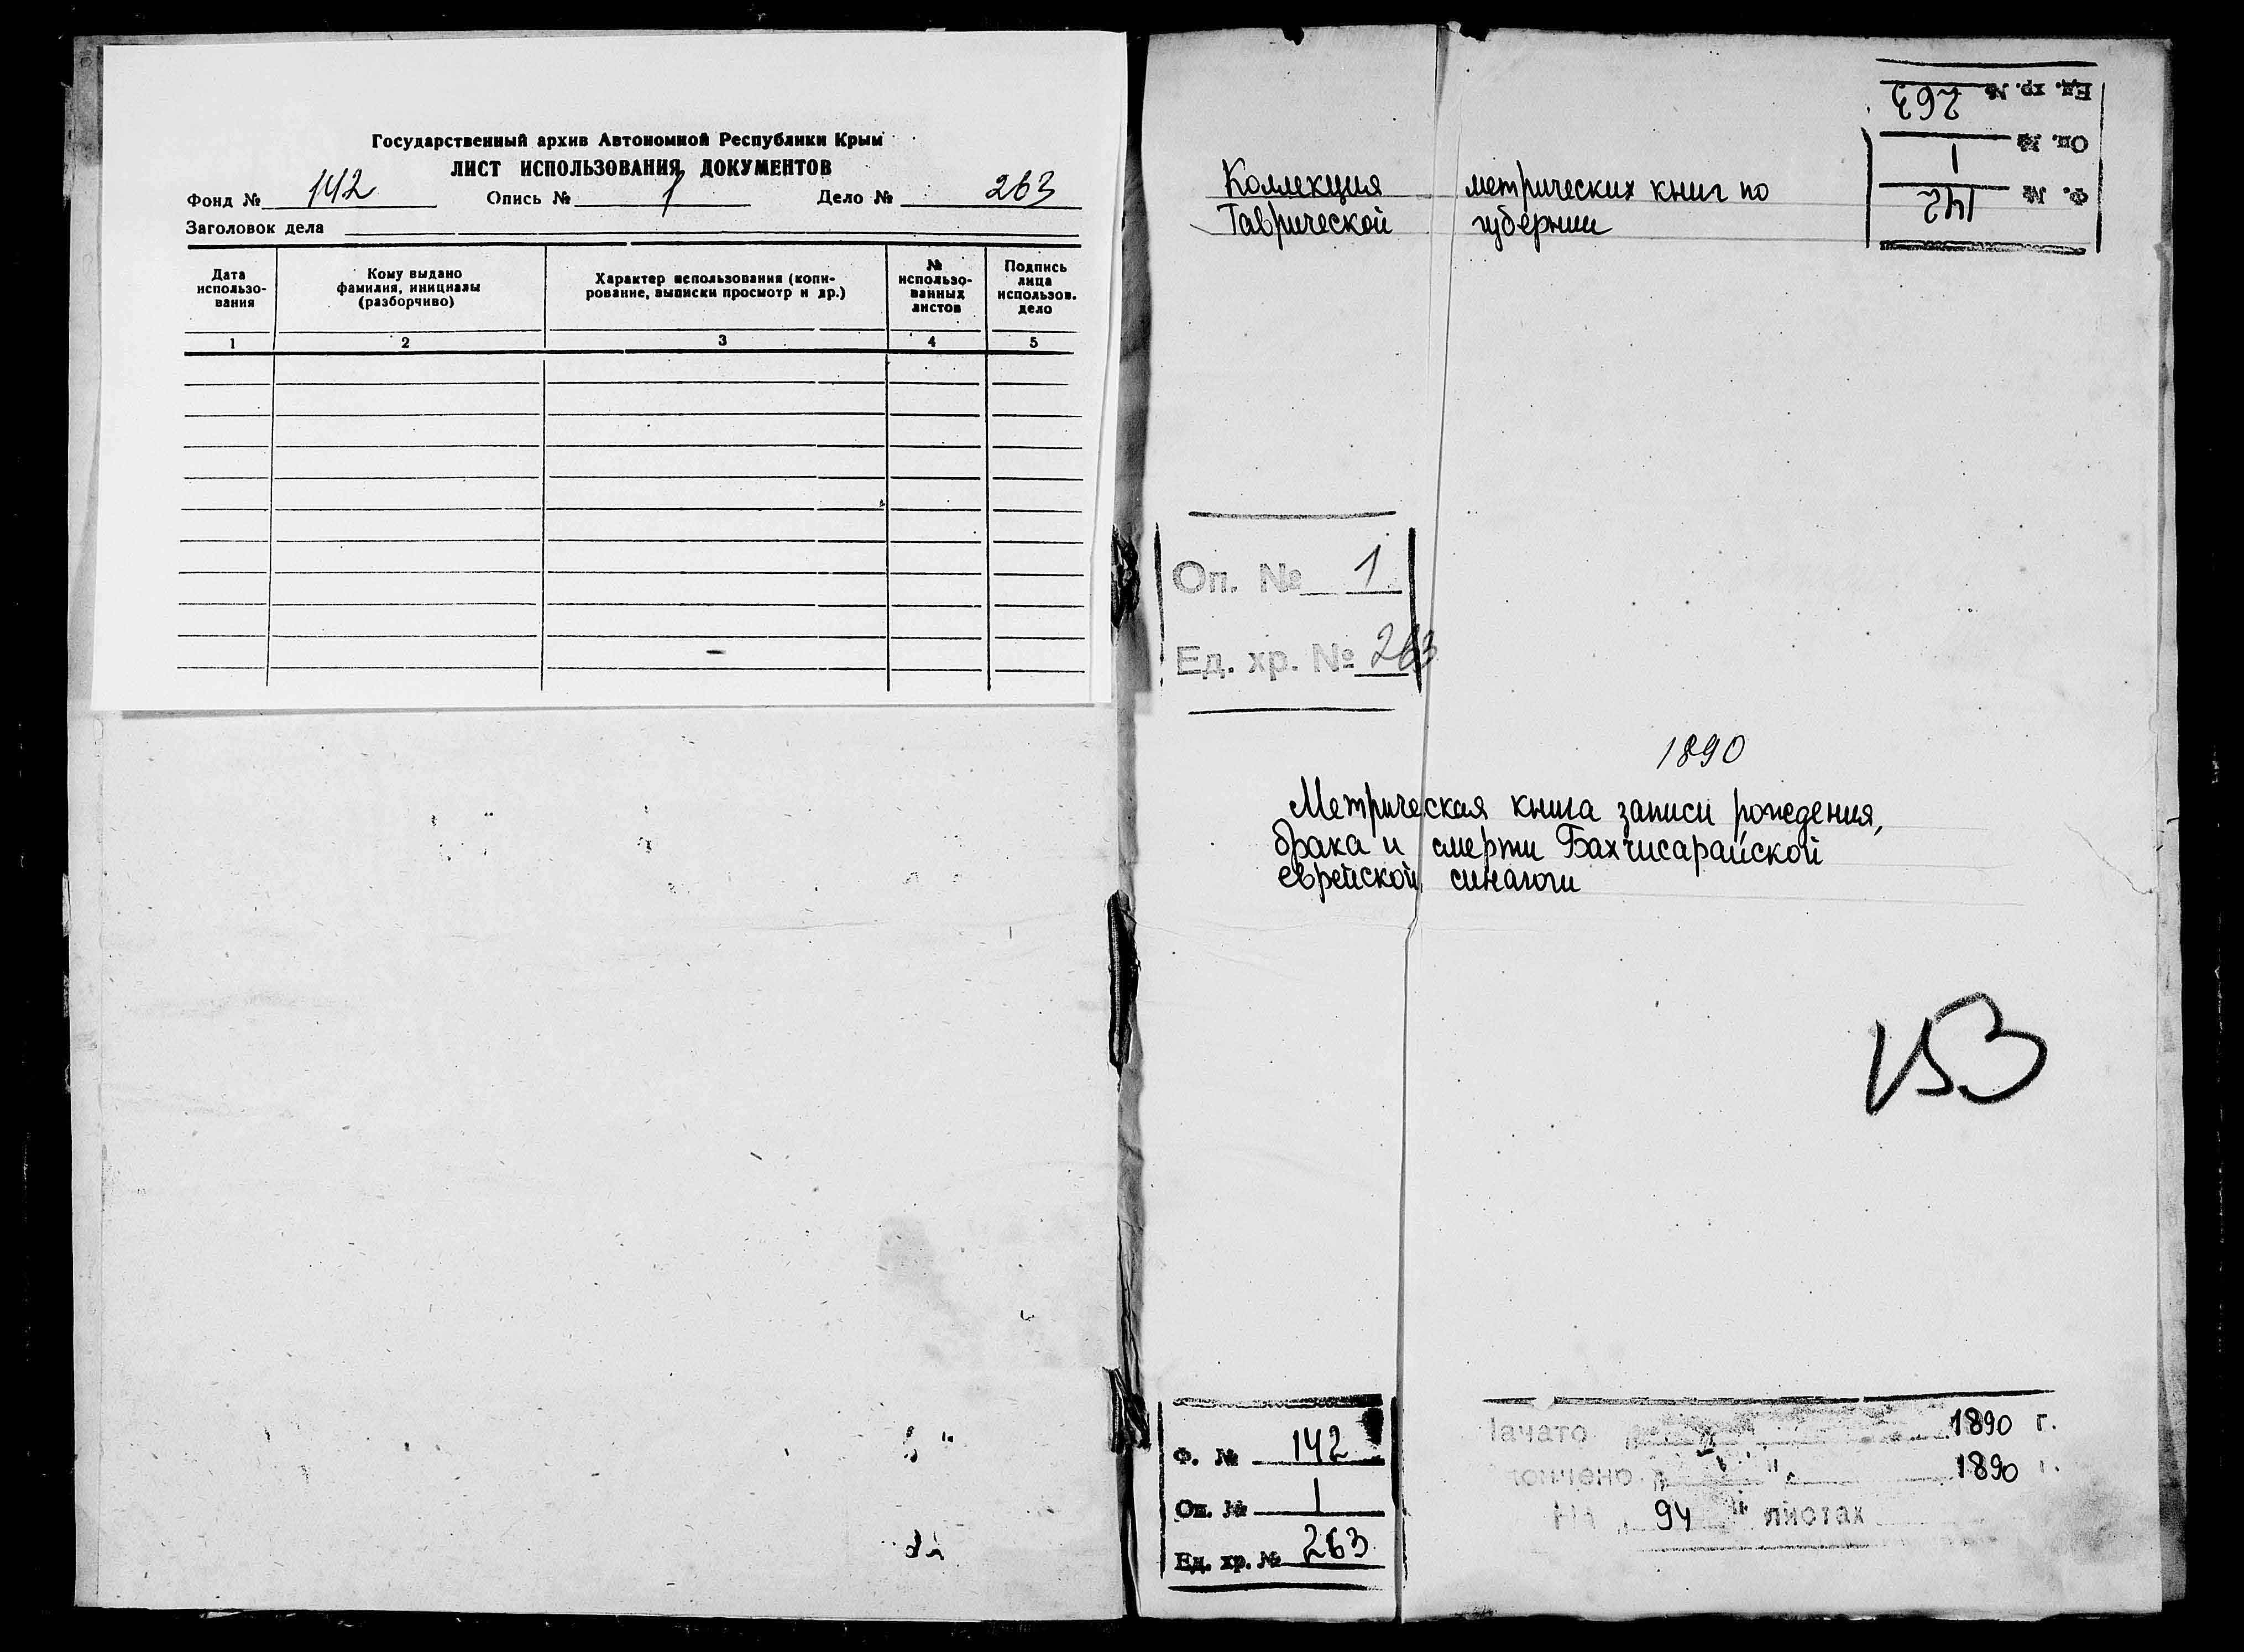 Государственный архив Автономной Республики Крым
ЛИСТ ИСПОЛЬЗОВАНИЯ ДОКУМЕНТОВ
Фонд № 142 Опись № 1 Дело № 263
Заголовок дела
Дата использо-вания
Кому выдано фамилия, инициалы (разборчиво)
Характер использования (копи-рование, выписки просмотр и др.)
№ использо-ванных листов
Подпись лица использов. дело
1 2 3 4 5
Ф. № 142
Оп. № 1
Ед. хр. № 263
Коллекция метрических книг по
Таврической губернии
Оп. № 1
Ед. хр. № 263
1890
Метрическая книга записи рождения,
брака и смерти Бахчисарайской
еврейской синагоги
Ф. № 142
Оп. № 1
Ед. хр. № 263
Начато 1890 г.
кончено 1890 г.
На 94 листах